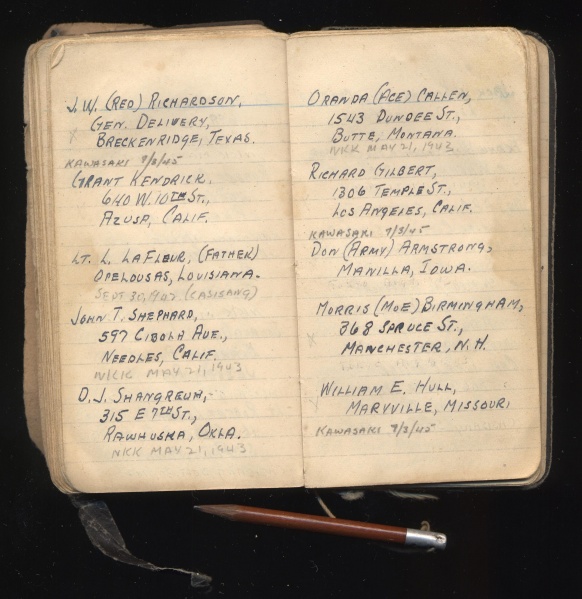 J.W. (RED) RICHARDSON,
GEN. DELIVERY,
BRECKENRIDGE, TEXAS.
KAWASAKI 9/3/45
GRANT KENDRICK,
640 W. 10TH ST.,
AZUSA, CALIF.
LT. L. LAFLEUR, (FATHER)
OPELOUSAS, LOUISIANA.
SEPT 30, 1942 (CASISANG)
JOHN T. SHEPHARD,
597 CIBOLA AVE.,
NEEDLES, CALIF.
NKK MAY 21, 1943
O.J. SHANGREUA,
315 E 7TH ST.,
PAWHUSKA, OKLA.
NKK MAY 21, 1943
ORANDA (ACE) CALLEN,
1543 DUNDEE ST.,
BUTTE, MONTANA.
NKK MAY 21, 1943
RICHARD GILBERT,
1306 TEMPLE ST.,
LOS ANGELES, CALIF.
KAWASAKI 9/3/45
DON (ARMY) ARMSTRONG,
MANILLA, IOWA.
MORRIS (MOE) BIRMINGHAM,
X 368 SPRUCE ST.,
MANCHESTER, N.H.
WILLIAM E. HULL,
MARYVILLE, MISSOURI
KAWASAKI 9/3/45